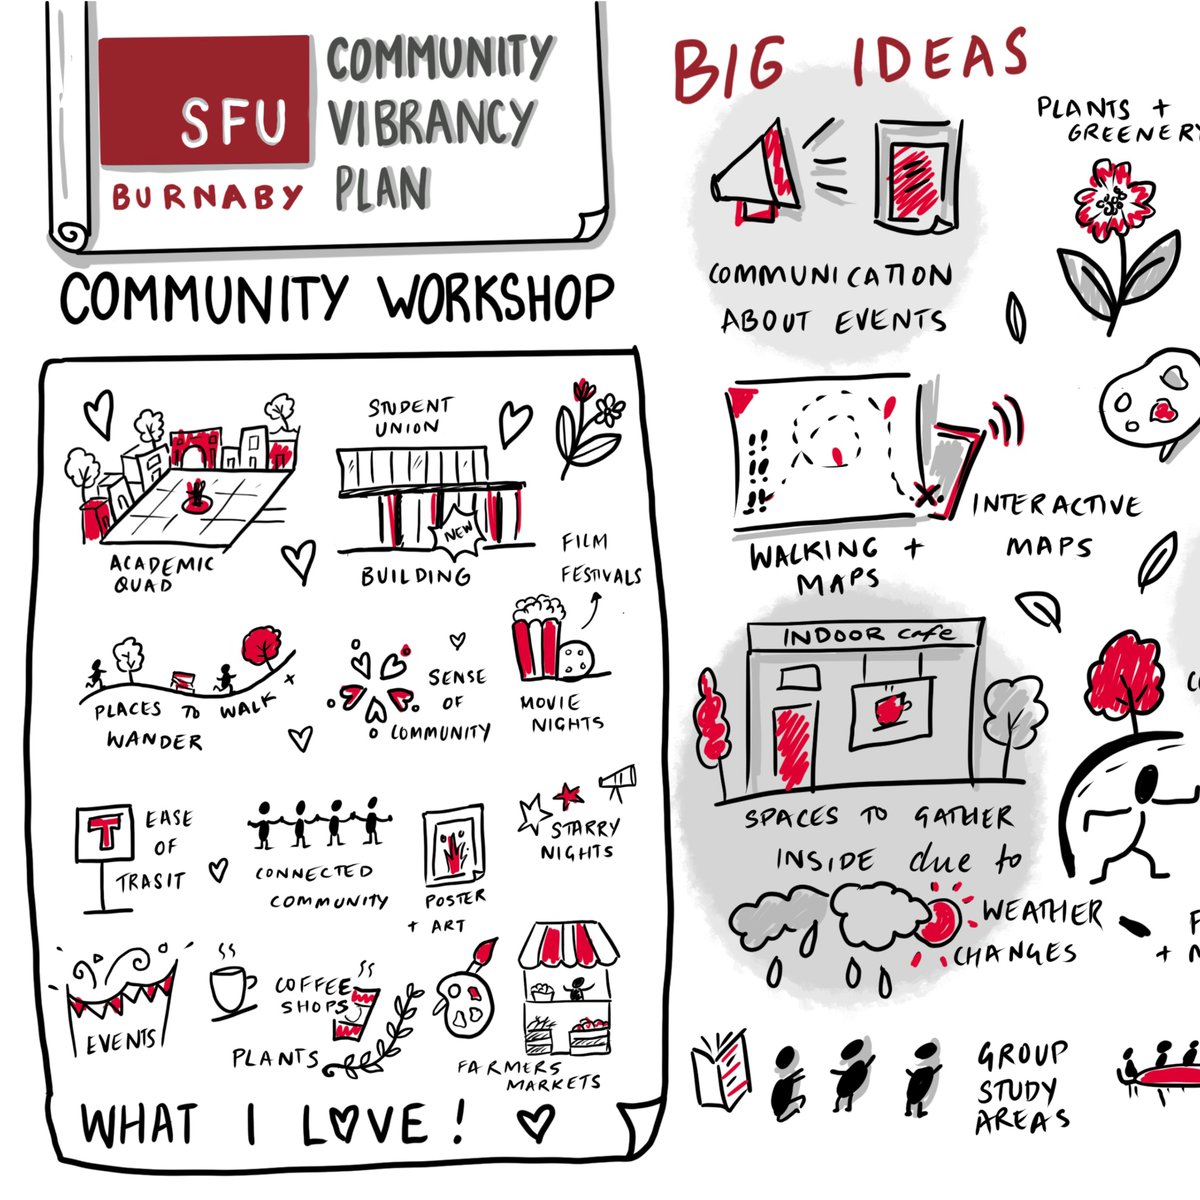 SFU
BURNABY
COMMUNITY
VIBRANCY
PLAN
COMMUNITY WORKSHOP
ACADEMIC
QUAD
STUDENT
UNION
NEW
BUILDING
FILM
FESTIVALS
PLACES TO WALK +
WANDER
SENSE
OF
COMMUNITY
MOVIE
NIGHTS
T
EASE
OF
TRASIT
CONNECTED
COMMUNITY
POSTER
+ ART
STARRY
NIGHTS
EVENTS
COFFEE
SHOPS
PLANTS
FARMERS
MARKETS
WHAT I LOVE!
BIG IDEAS
COMMUNICATION
ABOUT EVENTS
PLANTS +
GREENERY
WALKING +
MAPS
INTERACTIVE
MAPS
INDOOR cafe
SPACES TO GATHER
INSIDE due to
WEATHER
CHANGES
GROUP
STUDY
AREAS